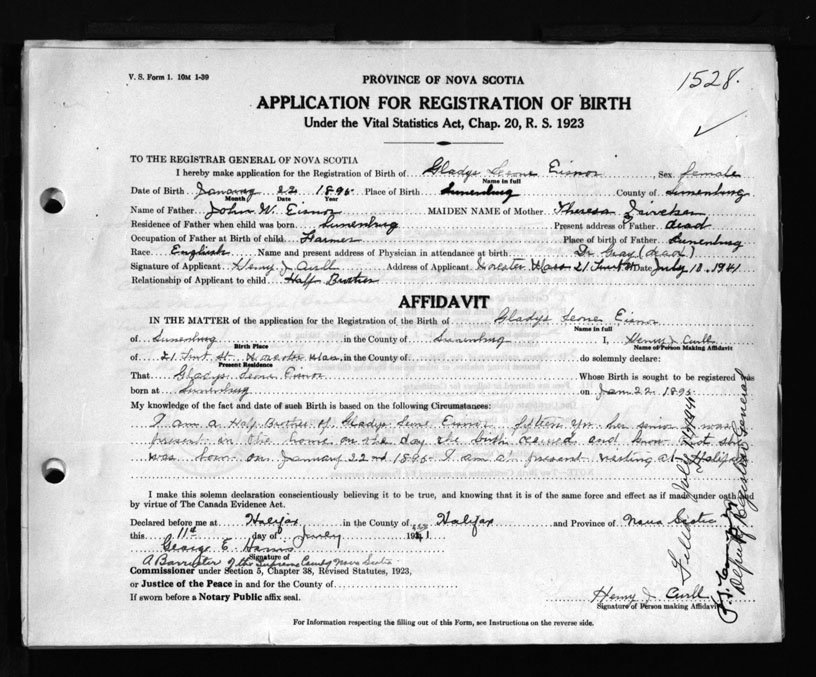 V. S. Form 1. 10M 1-39
1528.
PROVINCE OF NOVA SCOTIA
APPLICATION FOR REGISTRATION OF BIRTH
Under the Vital Statistics Act, Chap. 20, R. S. 1923
TO THE REGISTRAR GENERAL OF NOVA SCOTIA
I hereby make application for the Registration of Birth of Gladys Leone Eisnor Sex female
Name in full
Date of Birth January 22 1895 Place of Birth Lunenburg County of Lunenburg
Month Date Year
Name of Father John W. Eisnor MAIDEN NAME of Mother Theresa
Residence of Father when child was born Lunenburg Present address of Father dead
Occupation of Father at Birth of child Farmer Place of birth of Father Lunenburg
Race English Name and present address of Physician in attendance at birth Dr Gray (dead)
Signature of Applicant Henry J Address of Applicant Worcester Mass 21 St Date July 10 1941
Relationship of Applicant to child Half Brother
AFFIDAVIT
IN THE MATTER of the application for the Registration of the Birth of Gladys Leone Eisnor
Name in full
of Lunenburg in the County of Lunenburg I, Henry J
Birth Place Name of Person Making Affidavit
of 21 St. Worcester Mass, in the County of do solemnly declare:
Present Residence
That Gladys Leone Eisnor Whose Birth is sought to be registered was
born at Lunenburg on Jan 22 1895
My knowledge of the fact and date of such Birth is based on the following Circumstances:
I am a Half Brother of Gladys Leone Eisnor fifteen yrs her senior I was
present in the home on the day the birth occured and know that she
was born on January 22nd 1895 I am at present visiting at Halifax
I make this solemn declaration conscientiously believing it to be true, and knowing that it is of the same force and effect as if made under oath and
by virtue of The Canada Evidence Act.
Declared before me at Halifax in the County of Halifax and Province of Nova Scotia
this 11th day of July 1941
George E. Harris
Signature of
A Barrister of the Supreme Court of Nova Scotia
Commissioner under Section 5, Chapter 38, Revised Statutes, 1923,
or Justice of the Peace in and for the County of
If sworn before a Notary Public affix seal.
Henry J
Signature of Person making Affidavit
For Information respecting the filling out of this Form, see Instructions on the reverse side.
Filed July
Deputy Registrar General